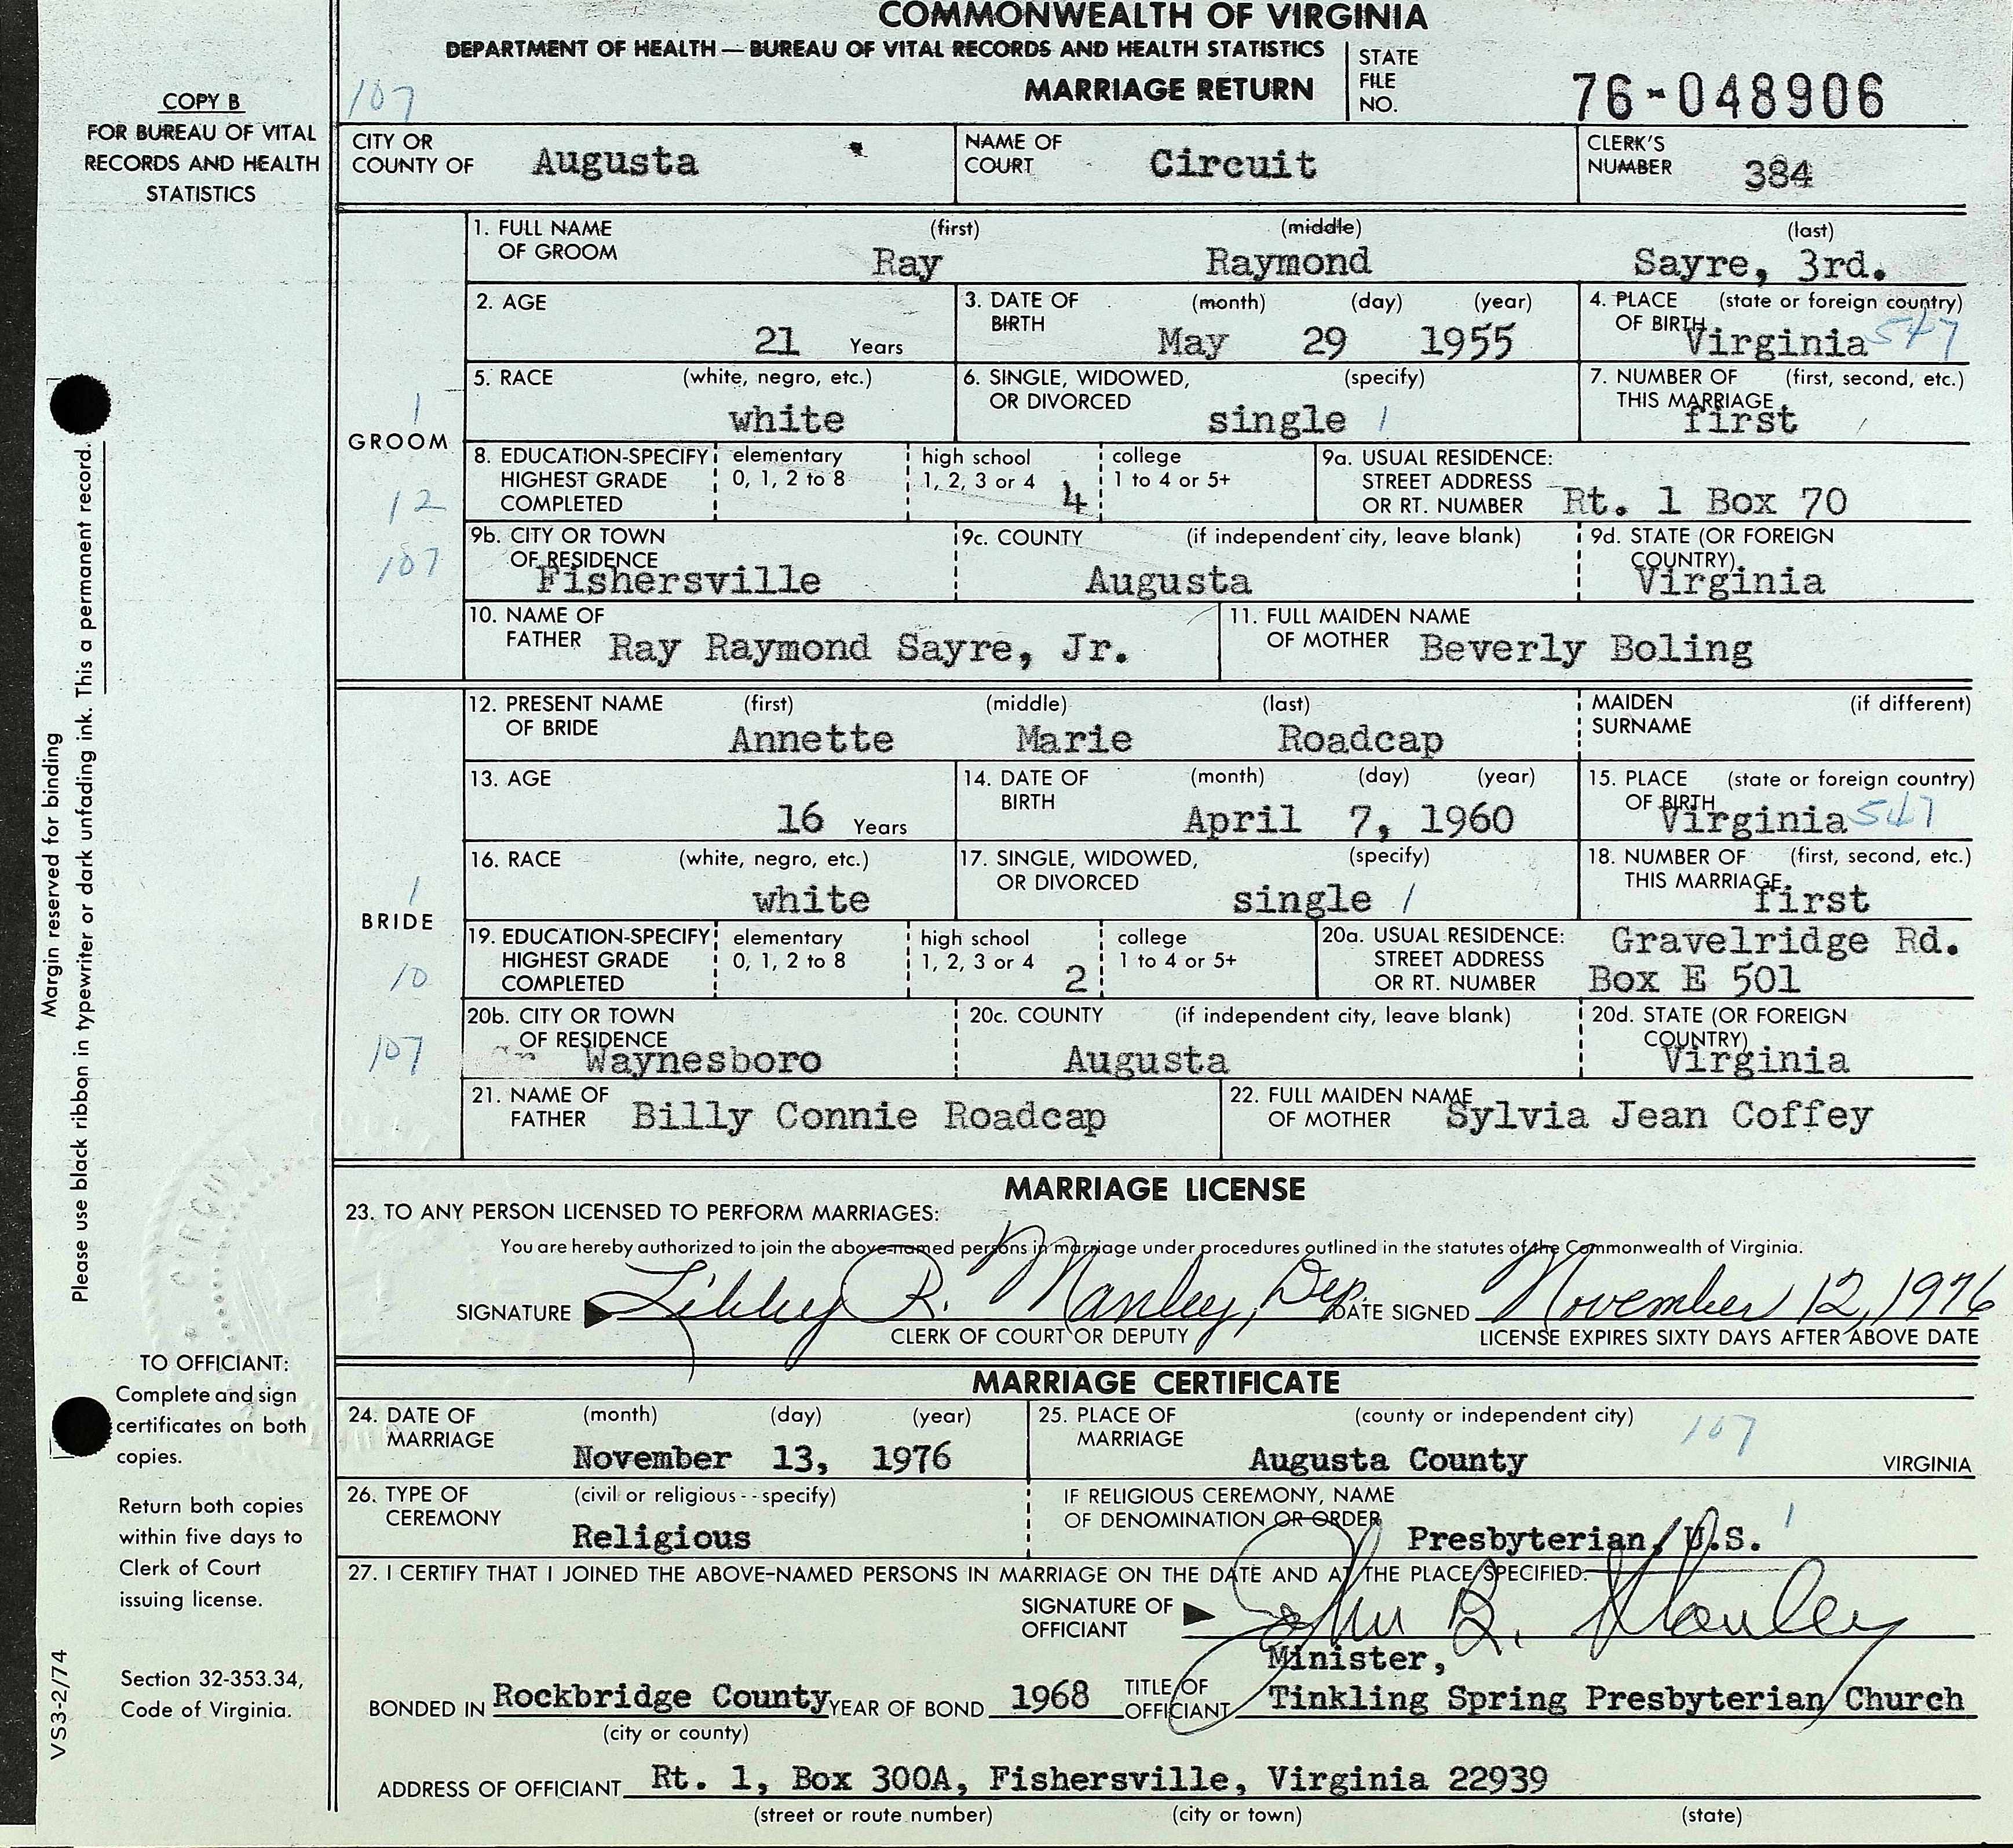 COMMONWEALTH OF VIRGINIA
DEPARTMENT OF HEALTH — BUREAU OF VITAL RECORDS AND HEALTH STATISTICS
MARRIAGE RETURN
STATE FILE NO. 76-048906
COPY B
FOR BUREAU OF VITAL
RECORDS AND HEALTH
STATISTICS
107
CITY OR COUNTY OF Augusta
NAME OF COURT Circuit
CLERK'S NUMBER 384
GROOM
1
12
107
1. FULL NAME OF GROOM (first) (middle) (last)
Ray Raymond Sayre, 3rd.
2. AGE 21 Years
3. DATE OF BIRTH (month) (day) (year)
May 29 1955
4. PLACE OF BIRTH (state or foreign country)
Virginia 547
5. RACE (white, negro, etc.)
white
6. SINGLE, WIDOWED, OR DIVORCED (specify)
single 1
7. NUMBER OF THIS MARRIAGE (first, second, etc.)
first
8. EDUCATION-SPECIFY HIGHEST GRADE COMPLETED
elementary 0, 1, 2 to 8
high school 1, 2, 3 or 4 4
college 1 to 4 or 5+
9a. USUAL RESIDENCE: STREET ADDRESS OR RT. NUMBER Rt. 1 Box 70
9b. CITY OR TOWN OF RESIDENCE
Fishersville
9c. COUNTY (if independent city, leave blank)
Augusta
9d. STATE (OR FOREIGN COUNTRY)
Virginia
10. NAME OF FATHER Ray Raymond Sayre, Jr.
11. FULL MAIDEN NAME OF MOTHER Beverly Boling
BRIDE
1
10
107
12. PRESENT NAME OF BRIDE (first) (middle) (last)
Annette Marie Roadcap
MAIDEN SURNAME (if different)
13. AGE 16 Years
14. DATE OF BIRTH (month) (day) (year)
April 7, 1960
15. PLACE OF BIRTH (state or foreign country)
Virginia 547
16. RACE (white, negro, etc.)
white
17. SINGLE, WIDOWED, OR DIVORCED (specify)
single 1
18. NUMBER OF THIS MARRIAGE (first, second, etc.)
first
19. EDUCATION-SPECIFY HIGHEST GRADE COMPLETED
elementary 0, 1, 2 to 8
high school 1, 2, 3 or 4 2
college 1 to 4 or 5+
20a. USUAL RESIDENCE: STREET ADDRESS OR RT. NUMBER
Gravelridge Rd.
Box E 501
20b. CITY OR TOWN OF RESIDENCE
Waynesboro
20c. COUNTY (if independent city, leave blank)
Augusta
20d. STATE (OR FOREIGN COUNTRY)
Virginia
21. NAME OF FATHER Billy Connie Roadcap
22. FULL MAIDEN NAME OF MOTHER Sylvia Jean Coffey
MARRIAGE LICENSE
23. TO ANY PERSON LICENSED TO PERFORM MARRIAGES:
You are hereby authorized to join the above-named persons in marriage under procedures outlined in the statutes of the Commonwealth of Virginia.
SIGNATURE Libby R. Manley, Dep. DATE SIGNED November 12, 1976
CLERK OF COURT OR DEPUTY LICENSE EXPIRES SIXTY DAYS AFTER ABOVE DATE
MARRIAGE CERTIFICATE
24. DATE OF MARRIAGE (month) (day) (year)
November 13, 1976
25. PLACE OF MARRIAGE (county or independent city) 107
Augusta County VIRGINIA
26. TYPE OF CEREMONY (civil or religious--specify)
Religious
IF RELIGIOUS CEREMONY, NAME OF DENOMINATION OR ORDER
Presbyterian, U.S. 1
27. I CERTIFY THAT I JOINED THE ABOVE-NAMED PERSONS IN MARRIAGE ON THE DATE AND AT THE PLACE SPECIFIED.
SIGNATURE OF OFFICIANT John B.
BONDED IN Rockbridge County YEAR OF BOND 1968
(city or county)
TITLE OF OFFICIANT Minister,
Tinkling Spring Presbyterian Church
ADDRESS OF OFFICIANT Rt. 1, Box 300A, Fishersville, Virginia 22939
(street or route number) (city or town) (state)
Margin reserved for binding
Please use black ribbon in typewriter or dark unfading ink. This a permanent record.
TO OFFICIANT:
Complete and sign
certificates on both
copies.
Return both copies
within five days to
Clerk of Court
issuing license.
Section 32-353.34,
Code of Virginia.
VS3-2/74